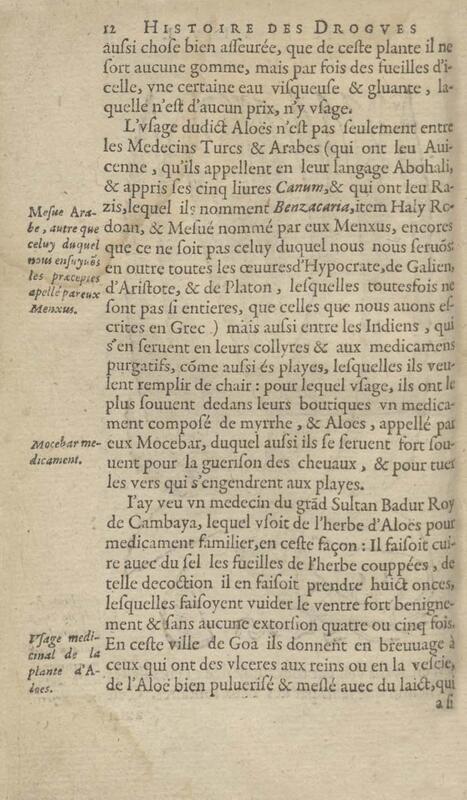 12 HISTOIRE DES DROGVES
auſsi choſe bien aſſeurée, que de ceſte plante il ne
ſort aucune gomme, mais par fois des fueilles d'i-
celle, vne certaine eau viſqueuſe & gluante, la-
quelle n'eſt d'aucun prix, n'y vſage.
L'vſage dudict Aloës n'eſt pas ſeulement entre
les Medecins Turcs & Arabes (qui ont leu Aui-
cenne, qu'ils appellent en leur langage Abohali,
& appris ſes cinq liures Canum, & qui ont leu Ra-
zis, lequel ils nomment Benzacaria, item Haly Ro-
doan, & Meſué nommé par eux Menxus, encores
que ce ne ſoit pas celuy duquel nous nous ſeruõs:
en outre toutes les œuures d'Hypocrate, de Galien,
d'Ariſtote, & de Platon, leſquelles toutesfois ne
ſont pas ſi entieres, que celles que nous auons eſ-
crites en Grec.) mais auſsi entre les Indiens, qui
s'en ſeruent en leurs collyres & aux medicamens
purgatifs, cõme auſsi és playes, leſquelles ils veu-
lent remplir de chair: pour lequel vſage, ils ont le
plus ſouuent dedans leurs boutiques vn medica-
ment compoſé de myrrhe, & Aloës, appellé par
eux Mocebar, duquel auſsi ils ſe ſeruent fort ſou-
uent pour la gueriſon des cheuaux, & pour tuer
les vers qui s'engendrent aux playes.
I'ay veu vn medecin du grãd Sultan Badur Roy
de Cambaya, lequel vſoit de l'herbe d'Aloës pour
medicament familier, en ceſte façon: Il faiſoit cui-
re auec du ſel les fueilles de l'herbe couppées, de
telle decoction il en faiſoit prendre huict onces,
leſquelles faiſoyent vuider le ventre fort benigne-
ment & ſans aucune extorſion quatre ou cinq fois.
En ceſte ville de Goa ils donnent en breuuage à
ceux qui ont des vlceres aux reins ou en la veſcie,
de l'Aloë bien pulueriſé & meſlé auec du laict, qui
a ſi
Meſue Ara-
be, autre que
celuy duquel
nous enſuyuõs
les præceptes
apellé par eux
Menxus.
Mocebar me-
dicament.
Vſage medi-
cinal de la
plante d'A-
loes.